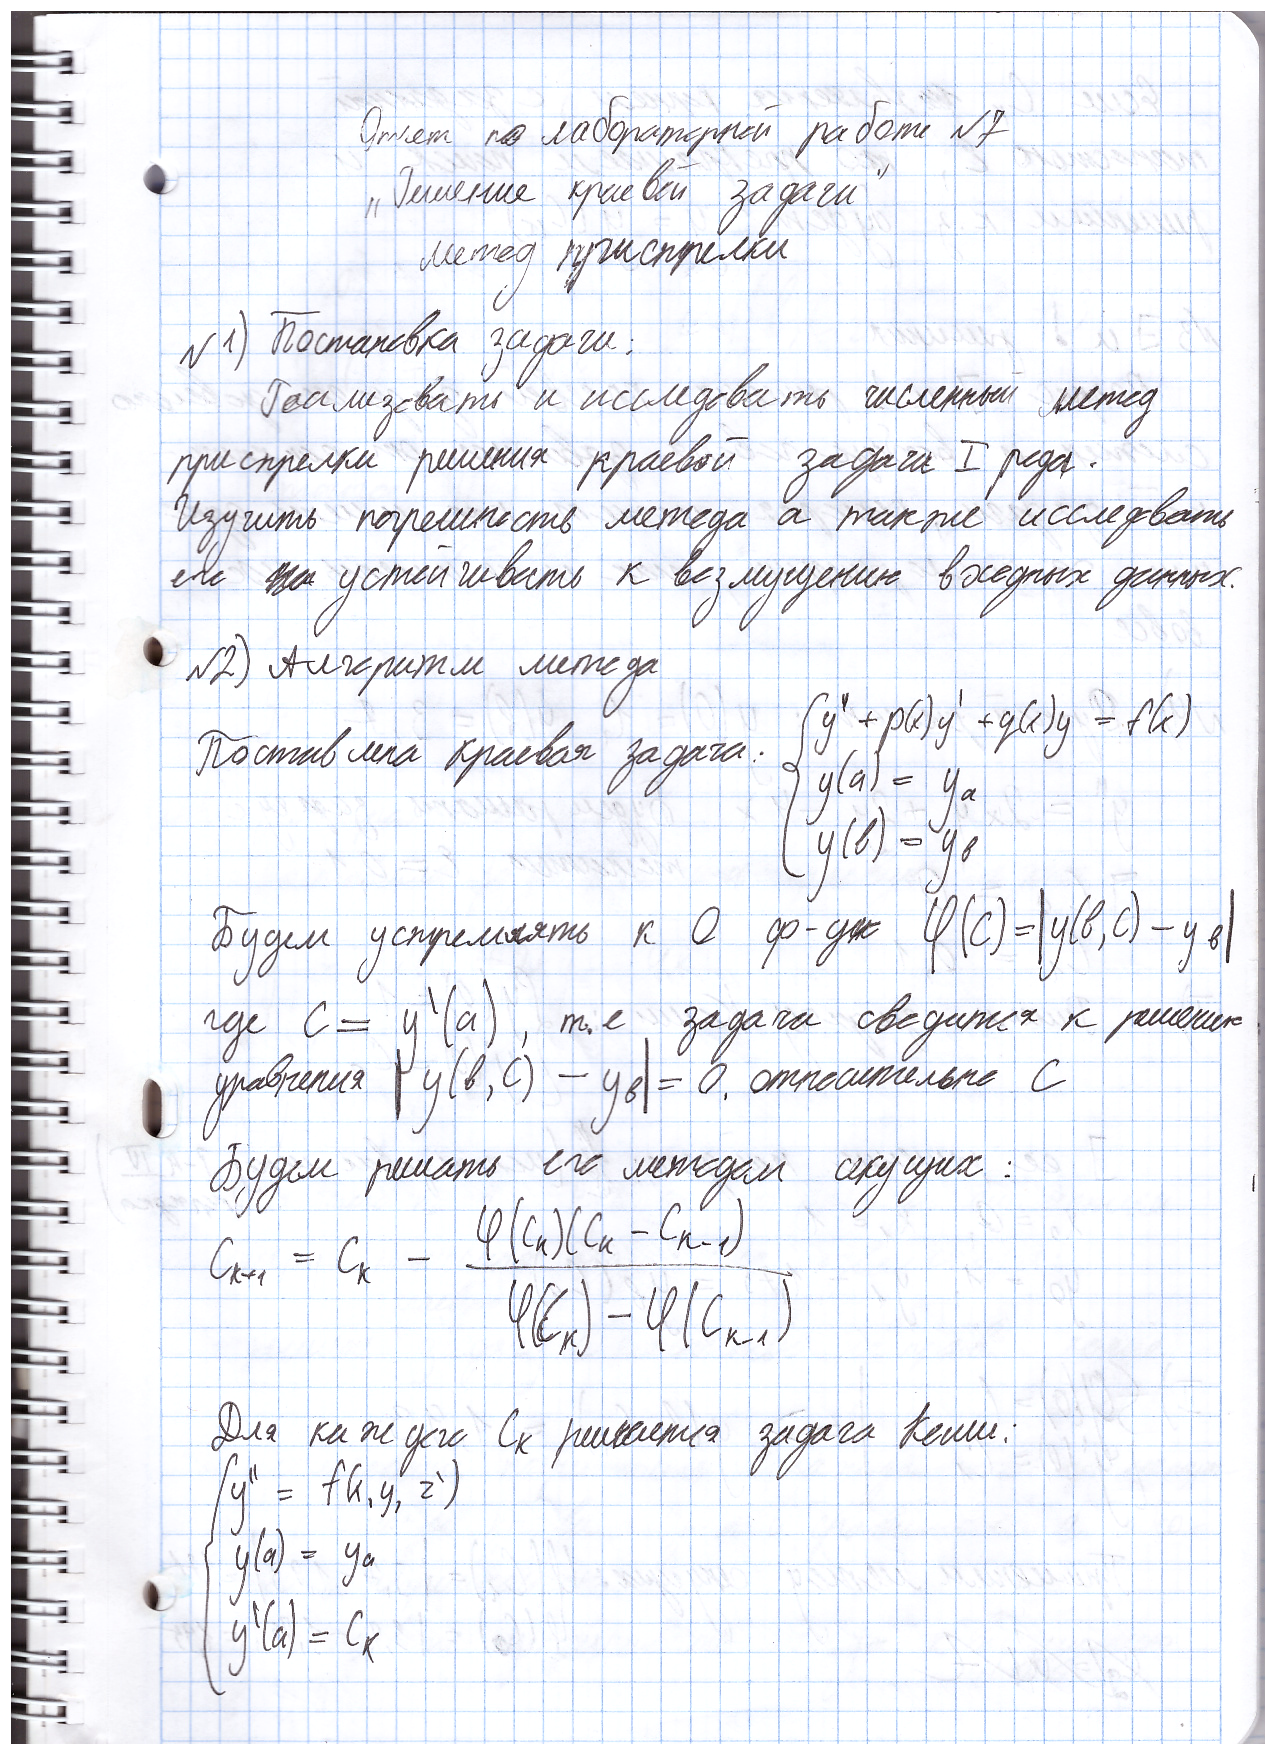 Отчет по лабораторной работе №7
„Решение краевой задачи"
Метод пристрелки
№1) Постановка задачи:
Реализовать и исследовать численный метод
пристрелки решения краевой задачи I рода.
Изучить погрешность метода а также исследовать
его на устойчивость к возмущению входных данных.
№2) Алгоритм метода
Поставлена краевая задача: { y'' + p(x)y' + q(x)y = f(x)
y(a) = yₐ
y(в) = y_в
Будем устремлять к 0 ф-цию φ(C) = |y(в,C) − y_в|
где C = y'(a), т.е задача сводится к решению
уравнения |y(в,C) − y_в| = 0. относительно C
Будем решать его методом секущих:
C_{k+1} = C_k − φ(C_k)(C_k − C_{k−1}) / φ(C_k) − φ(C_{k−1})
Для каждого C_k решается задача Коши:
{ y'' = f(x, y, z')
y(a) = yₐ
y'(a) = C_k